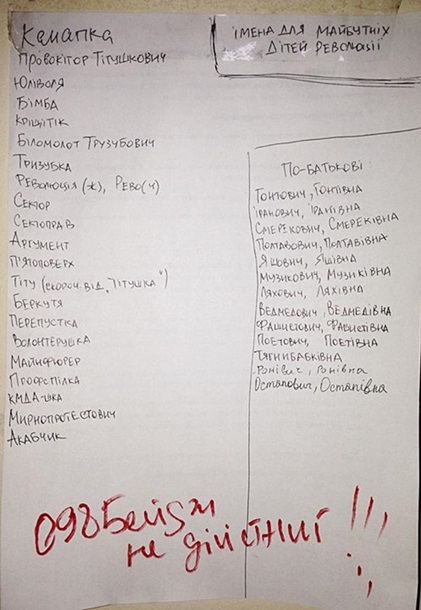 ІМЕНА ДЛЯ МАЙБУТНІХ
ДІТЕЙ РЕВОЛЮЦІЇ
Канапка
Провокітор Тітушкович
Юліволя
Бімба
Кріщітік
Біломолот Трузубович
Тризубка
Революція (ж), Рево(ч)
Сектор
Сектоправ
Аргумент
П'ятоповерх
Тіту (скороч. від „Тітушка")
Беркутя
Перепустка
Волонтерушка
Майнфюрер
Профспілка
КМДА-шка
Мирнопротестович
Акабчик
По-батькові
Гонтович, Гонтівна
Іранович, Іранівна
Смерекович, Смереківна
Полтавович, Полтавівна
Яшович, Яшівна
Музикович, Музиківна
Ляхович, Ляхівна
Ведмедович, Ведмедівна
Фашистович, Фашистівна
Поетович, Поетівна
Тягнибабківна
Ронівич, Ронівна
Остапович, Остапівна
098 Бейдж
не дійстний !!!